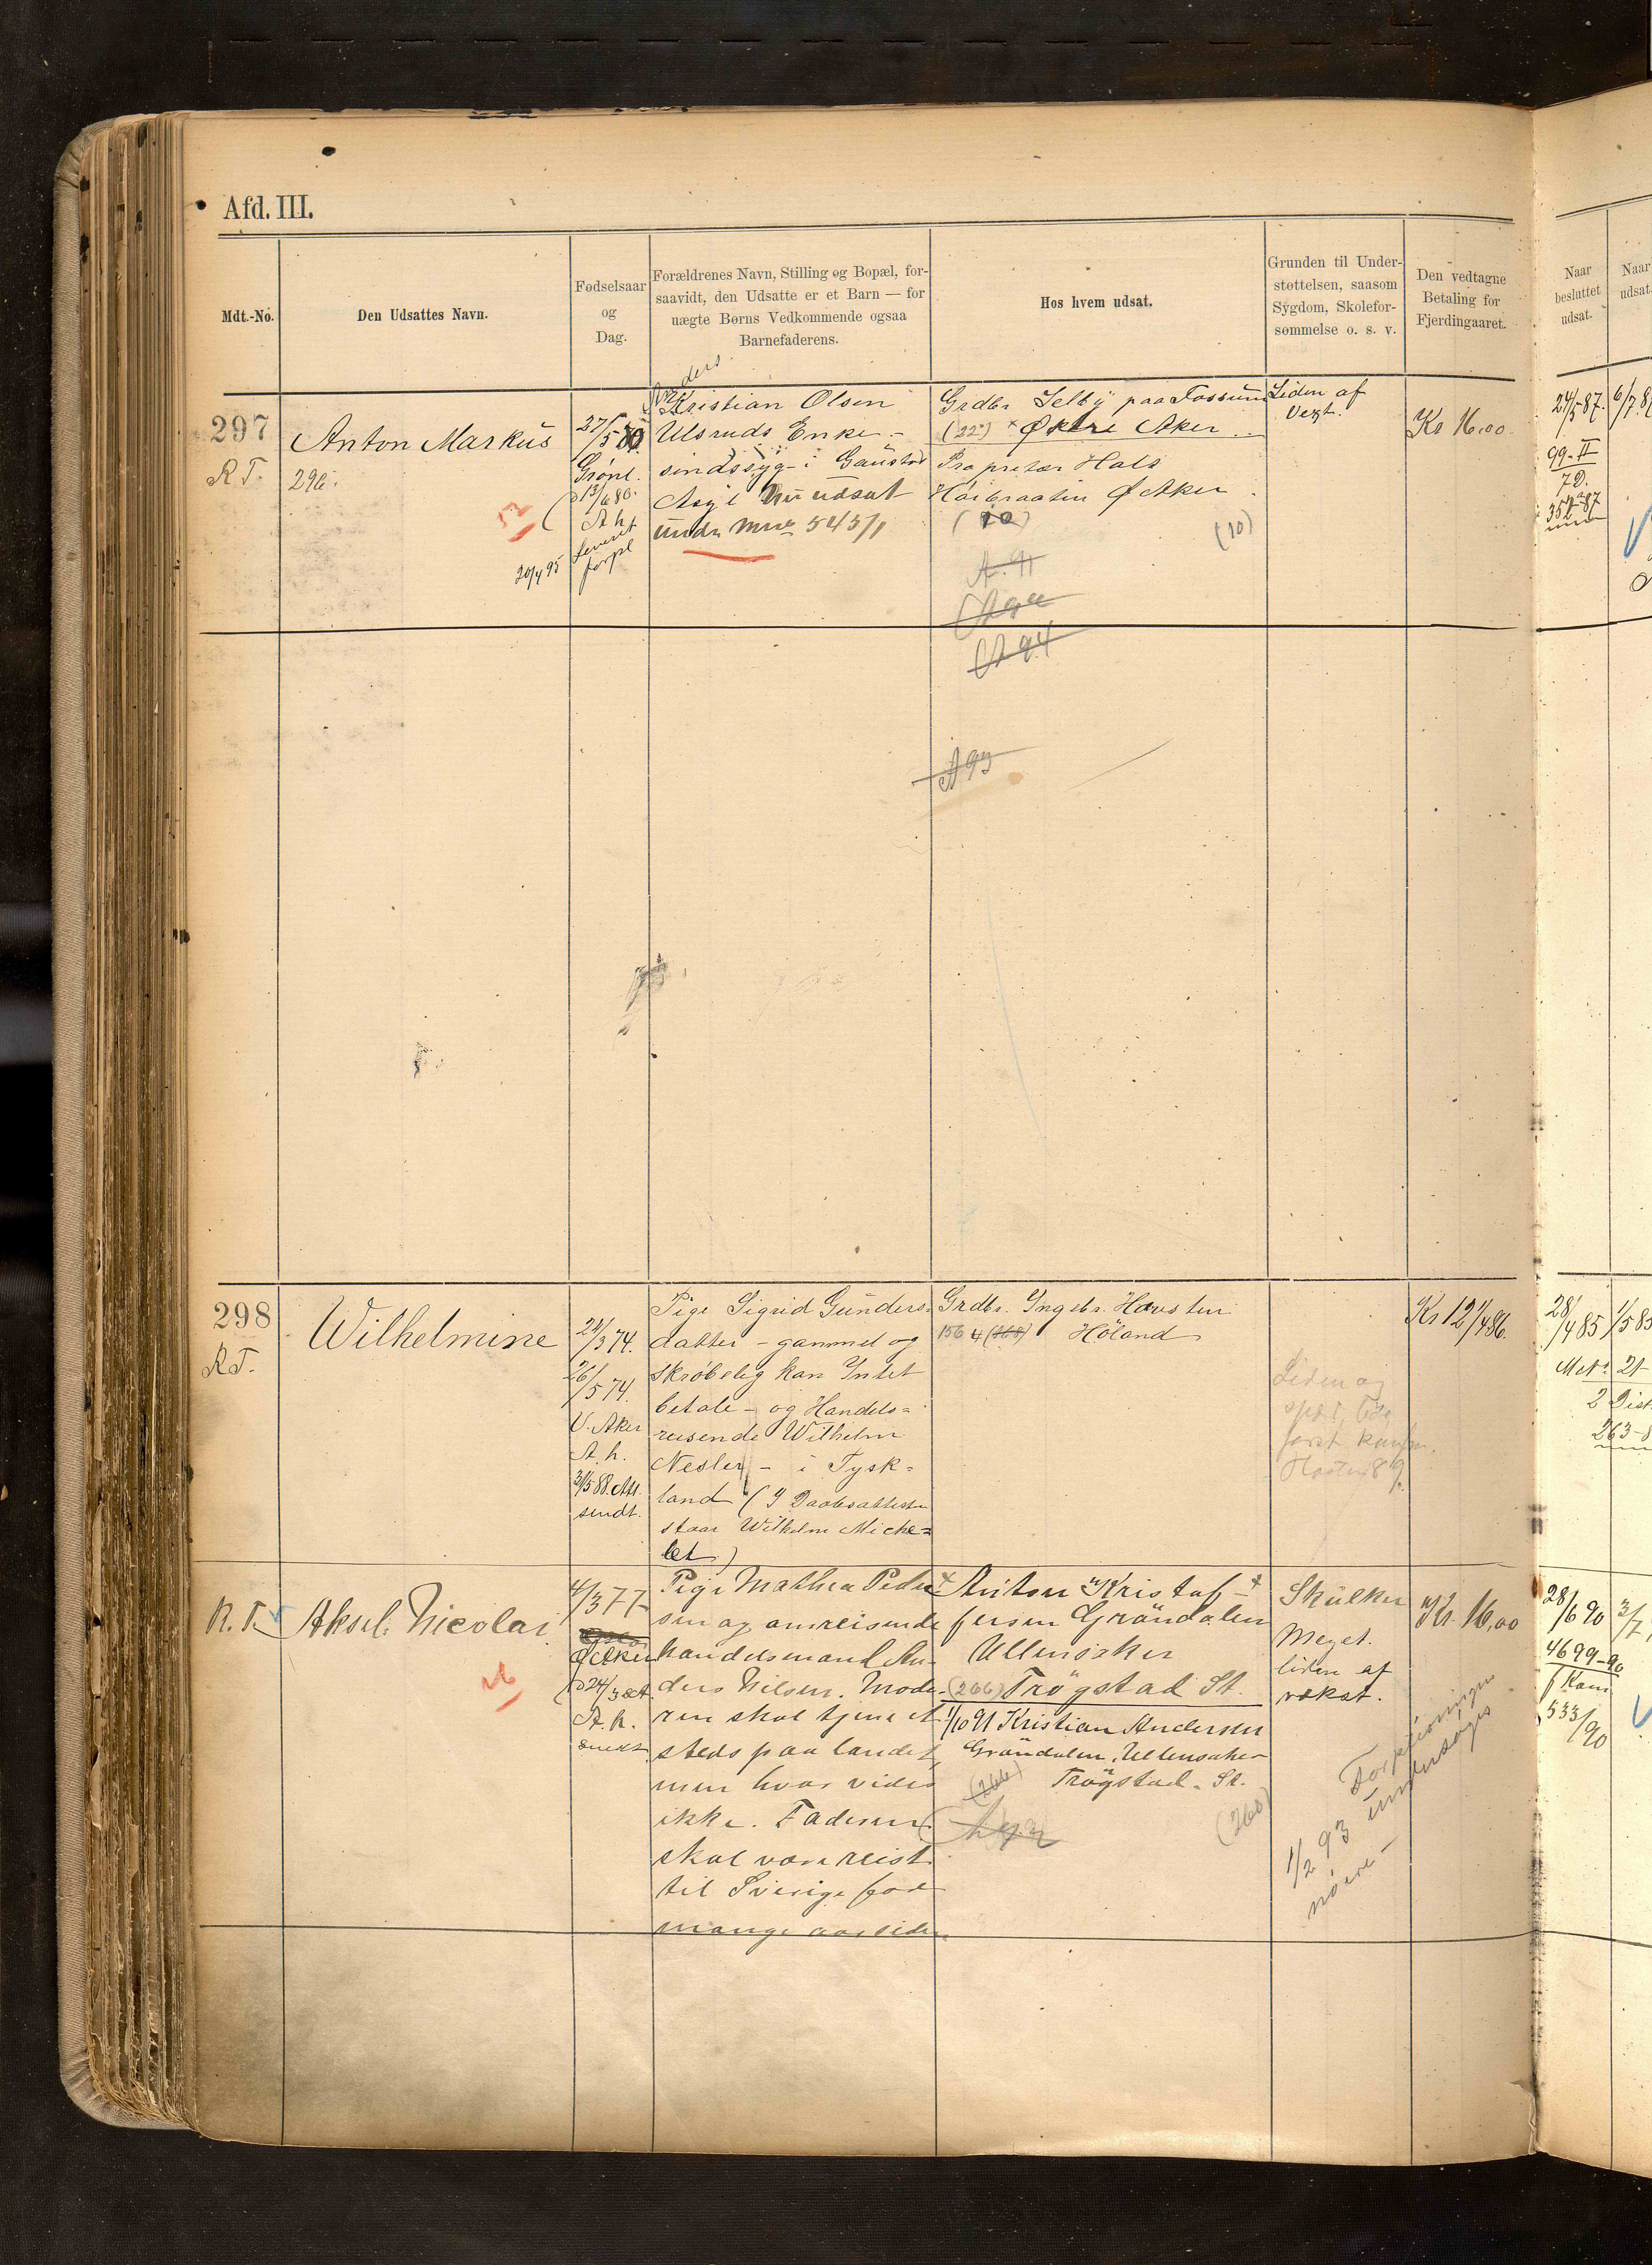 Afd. III.
Mdt.-No.
Den Udsattes Navn.
Fødselsaar
og
Dag.
Forældrenes Navn, Stilling og Bopæl, for-
saavidt, den Udsatte er et Barn — for
uægte Børns Vedkommende ogsaa
Barnefaderens.
Hos hvem udsat.
Grunden til Under-
støttelsen, saasom
Sygdom, Skolefor-
sømmelse o. s. v.
Den vedtagne
Betaling for
Fjerdingaaret.
Naar
besluttet
udsat.
Naar
udsat
297
R T.
Anton Markus
296.
27/5 80
Grønl.
13/6 80.
A h
Leveret
forpl
20/4 95
Anders
Kristian Olsen
Ulsruds Enke -
sindssyg i Gaustad
Asyl Nu udsat
under Mno 545/1
Grdbr Selby paa Fossum
(22) Østre Aker
Propretær Hals
Høibraaten Ø Aker
(10)
(10)
A. 91
A 94
A 93
Liden af
Vext.
Kr 16,00
24/5 87.
99-II
7D.
352-87
298
R.T.
Wilhelmine
24/3 74.
26/5 74.
V. Aker
A. h.
31/5 88. Att.
sendt.
Pige Sigrid Gunders-
datter - gammel og
skrøbelig kan Intet
betale - og Handels=
reisende Wilhelm
Nesler - i Tysk=
land (I Daabsattesten
staar Wilhelm Miche=
let)
Grdbr. Ingebr. Hausten
156 4 Høland
Liden og
først konfm.
Høsten 89
Kr 12 1/4 86.
28/4 85
1/5 85
2 Dist.
263-8
R. T.
Aksel Nicolai
4/3 77
Ø Aker
24/3
A. h.
sendt
Pige Mathea Peder
sen og omreisende
handelsmand An-
ders Nilsen. Mode-
ren skal tjene et
steds paa landet,
men hvor vides
ikke. Faderen
skal være reist
til Sverige for
mange aar siden
Anton Kristof-
fersen Grøndalen
Ullensaker
(266) Trøgstad St.
1/10 91 Kristian Andersen
Grøndalen, Ullensaker
(266) Trøgstad St.
(260)
Skulker
Meget
liden af
vækst.
Kr. 16,00
Forpleiningen
1/2 93 undersøges
nøiere -
28/6 90
4699-90
f Kom
533/90